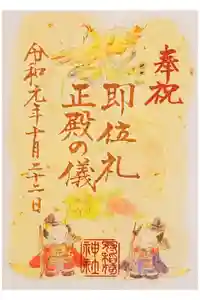 奉祝
即位礼
正殿の儀
令和元年十月二十二日
神社